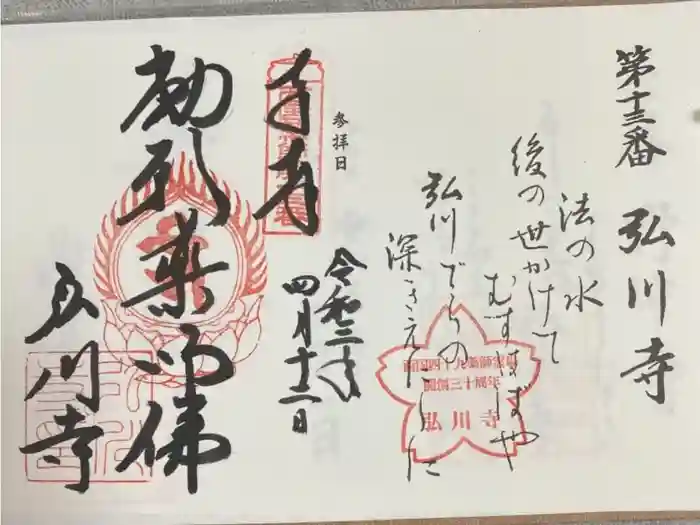 第十三番 弘川寺
法の水
後の世かけて
むすばばや
弘川でらの
深きえにしに
参拝日
奉拝
令和三年
四月十二日
勅願薬師佛
弘川寺
西国四十九薬師霊場
開創三十周年
弘川寺